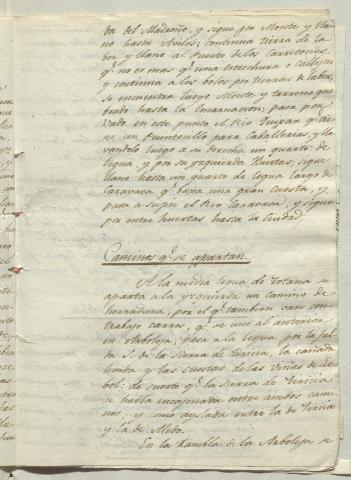 da del Madroño, y sigue por Monte y lla-
no hasta Aviles; continua tierra de la-
bor y llano al Puerto de los Carretones.
qe. no es mas qe. una estrechura o callejon
y continua a los bolos por tierras de labor,
se encuentra luego Monte y terreno que-
brado hasta la Encarnacion; pasa por
Vado en este punto el Rio Quipar qe. tie-
ne un Puentecillo para Caballerias, y lle-
vandolo luego a su derecha un quarto de
legua, y por su yzquierda Huertas; sigue
llano hasta un quarto de legua largo de
Caravaca qe. baxa una gran Cuesta, y
pasa a su pie el Rio Caravaca, y sigue
por entre huertas hasta la Ciudad.
Caminos qe. se apartan.
A la media legua de Totana se
aparta a la yzquierda un camino de
herradura, por el qe. tambien van con
trabajo carros, qe. se une al anterior
en la Arboleja; pasa a la legua por la fal-
da S. de la Sierra de Tercia, la cañada
honda y las cuestas de las Viñas de
bol: de suerte qe. la sierra de Tercia
se halla encajonada entre ambos cami-
nos, y como ayslada entre la de Tercia
y la de Meto.
En la Rambla de la Arboleja se